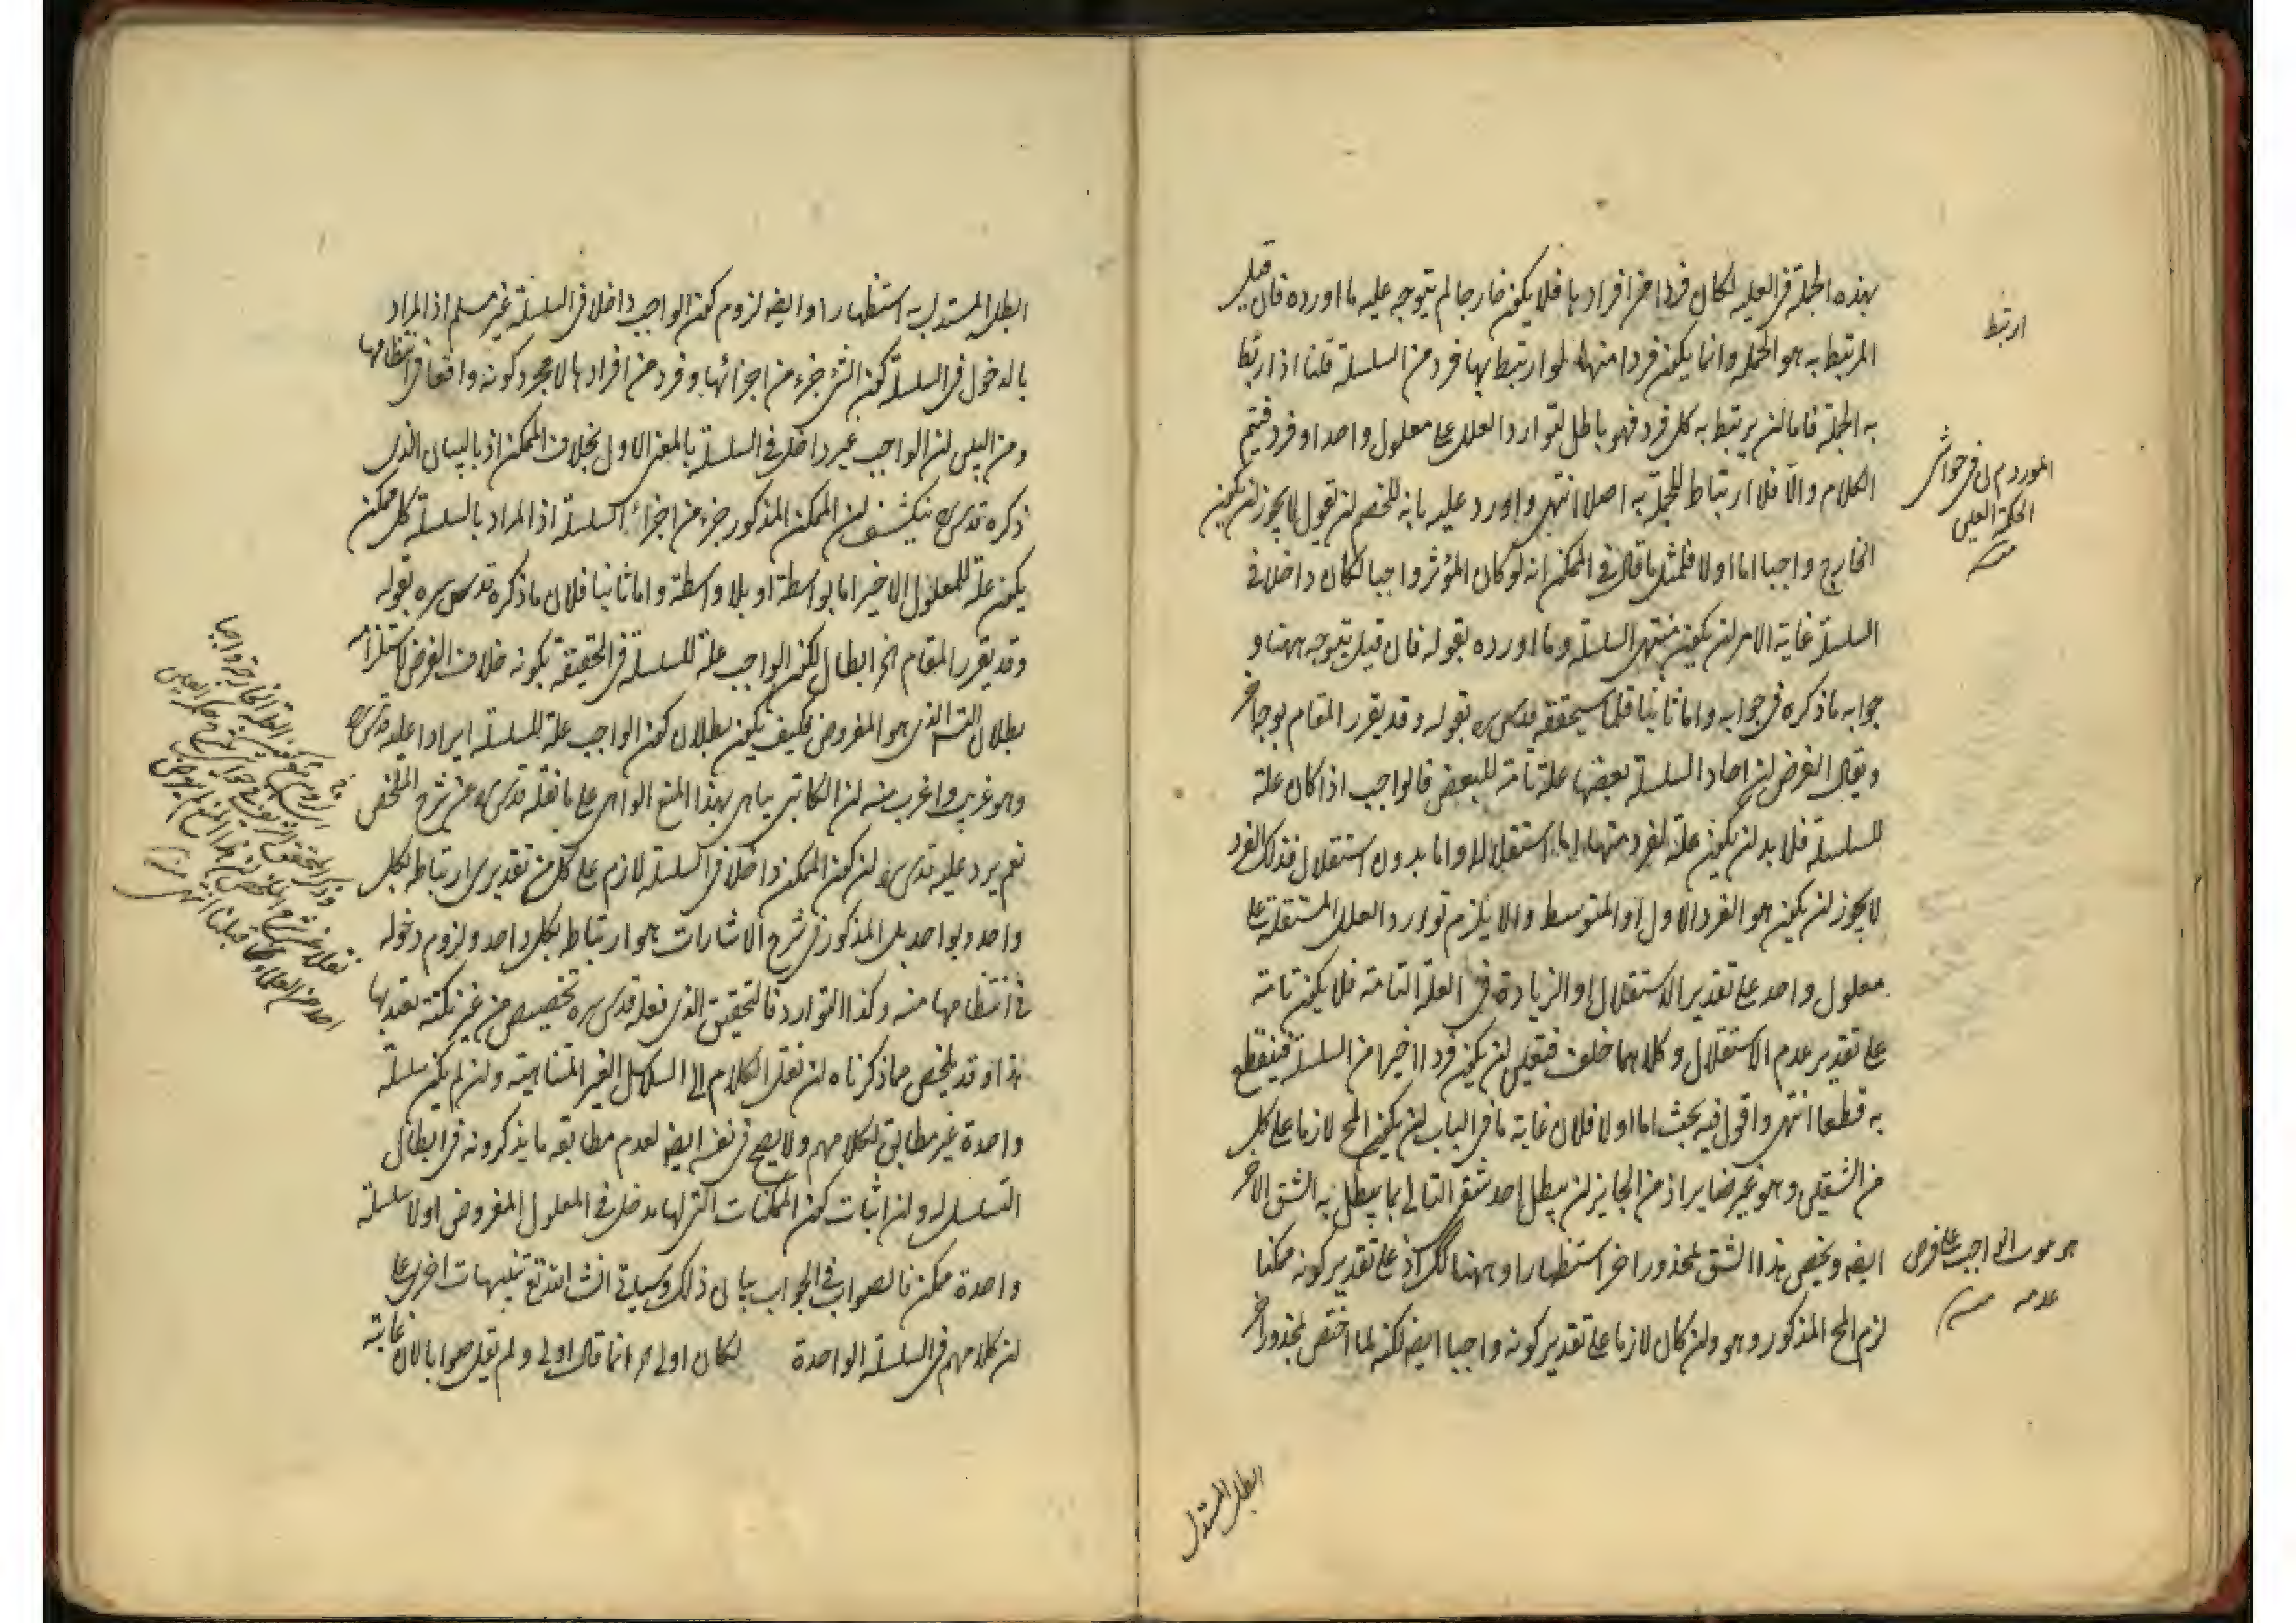 بهذه الجملة في العلية لكان فردا من افرادها فلا يكون خارجا لم يتوجه عليه ما اورده فان قيل
المرتبط به هو الجملة وانما يكون فردا منها لو ارتبط بها فرد من السلسلة قلنا اذا ارتبط
به الجملة فاما لن يرتبط به كل فرد فهو باطل لتوارد العلل على معلول واحد او فرد فيتم
الكلام والا فلا ارتباط للجملة به اصلا انتهى واورد عليه بانه للخصم لن يقول لا يجوز لن يكون
الخارج واجبا اما اولا فلمثل ما قال في الممكن انه لو كان المؤثر واجبا لكان داخلا في
السلسلة غاية الامر لن يكون منتهى السلسلة وما اورده بقوله فان قيل يتوجه ههنا و
جوابه ما ذكره في جوابه واما ثانيا فلما سيحققه قدس سره بقوله وقد يقرر المقام بوجه اخر
ويقال الفرض لن احاد السلسلة بعضها علة تامة للبعض فالواجب اذا كان علة
للسلسلة فلا بد لن يكون علة لفرد منها اما استقلالا واما بدون استقلال فذلك الفرد
لا يجوز لن يكون هو الفرد الاول او المتوسط والا يلزم توارد العلل المستقلة على
معلول واحد على تقدير الاستقلال او الزيادة في العلة التامة فلا يكون تامة
على تقدير عدم الاستقلال وكلاهما خلف فتعين لن يكون فردا اخيرا من السلسلة فينقطع
به قطعا انتهى واقول فيه بحث اما اولا فلان غاية ما في الباب لن يكون المح لازما على كل
من الشقين وهو غير ضاير اذ من الجايز لن يبطل احد شقي التالي بما يبطل به الشق الاخر
ايضه ويخص هذا الشق بمحذور اخر استظهارا وههنا كك اذ على تقدير كونه ممكنا
لزم المح المذكور وهو ولن كان لازما على تقدير كونه واجبا ايضه لكنه لما اختص بمحذور اخر
ارتبط
المورد م ن في حواشي
الحكمة العين
منه
على فرض
عدمه منه
ابطل المستدل
ابطل المستدل به استظهارا وايضه لزوم كون الواجب داخلا في السلسلة غير مسلم اذ المراد
بالدخول في السلسلة كون الشئ جزء من اجزائها وفرد من افرادها لا مجرد كونه واقعا في انتظامها
ومن البين لن الواجب غير داخل في السلسلة بالمعنى الاول بخلاف الممكن اذ بالبيان الذي
ذكره قدس سره ينكشف لن الممكن المذكور جزء من اجزاء السلسلة اذ المراد بالسلسلة كل ممكن
يكون علة للمعلول الاخير اما بواسطة او بلا واسطة واما ثانيا فلان ما ذكره قدس سره بقوله
وقد يقرر المقام الخ ابطال لكون الواجب علة للسلسلة في الحقيقة بكونه خلاف الفرض لاستلزامه
بطلان التسه الذي هو المفروض فكيف يكون بطلان كون الواجب علة للسلسلة ايرادا عليه قدس سره
وهو غريب واغرب منه لن الكاتبي يباهي بهذا المنع الواهي على ما نقله قدس سره عن شرح الملخص
نعم يرد عليه قدس سره لن كون الممكن داخلا في السلسلة لازم على كل من تقديري ارتباطه بكل
واحد وبواحد بل المذكور في شرح الاشارات هو ارتباطه بكل واحد ولزوم دخوله
في انتظامها منه وكذا التوارد فالتحقيق الذي فعله قدس سره تخصيص من غير نكتة يعتد بها
هذا وقد تلخص مما ذكرناه لن نقل الكلام الى السلاسل الغير المتناهية ولن لم يكن سلسلة
واحدة غير مطابق لكلامهم ولا يصح في نفسه ايضه لعدم مطابقه ما يذكرونه في ابطال
التسلسل له ولن اثبات كون الممكنات التي لها مدخل في المعلول المفروض اولا سلسلة
واحدة ممكن فالصواب في الجواب بيان ذلك وسياتي انشاء الله تع تنبيهات اخرى على
لن كلامهم في السلسلة الواحدة لكان اولى م انما قال اولى ولم يقل صوابا لان غاية